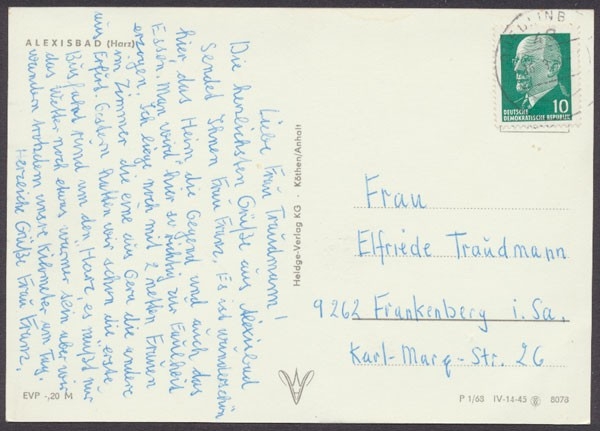 ALEXISBAD (Harz)
Liebe Frau Traudmann!
Die herzlichsten Grüße aus Alexisbad
sendet Ihnen Frau Franz. Es ist wunderschön
hier, das Heim, die Gegend und auch das
Essen. Man wird hier so richtig zur Faulheit
erzogen. Ich liege noch mit 2 netten Frauen
im Zimmer die eine aus Gera die andere
aus Erfurt. Gestern hatten wir schon die erste
Busfahrt rund um den Harz, es müßt nur
das Wetter noch etwas wärmer sein aber wir
wandern trotzdem unsre Kilometer am Tag.
Herzliche Grüße Frau Franz.
EVP -,20 M
Heldge-Verlag KG · Köthen/Anhalt
10
DEUTSCHE
DEMOKRATISCHE REPUBLIK
Frau
Elfriede Traudmann
9262 Frankenberg i. Sa.
Karl-Marx-Str. 26
P 1/68 IV-14-45 8073